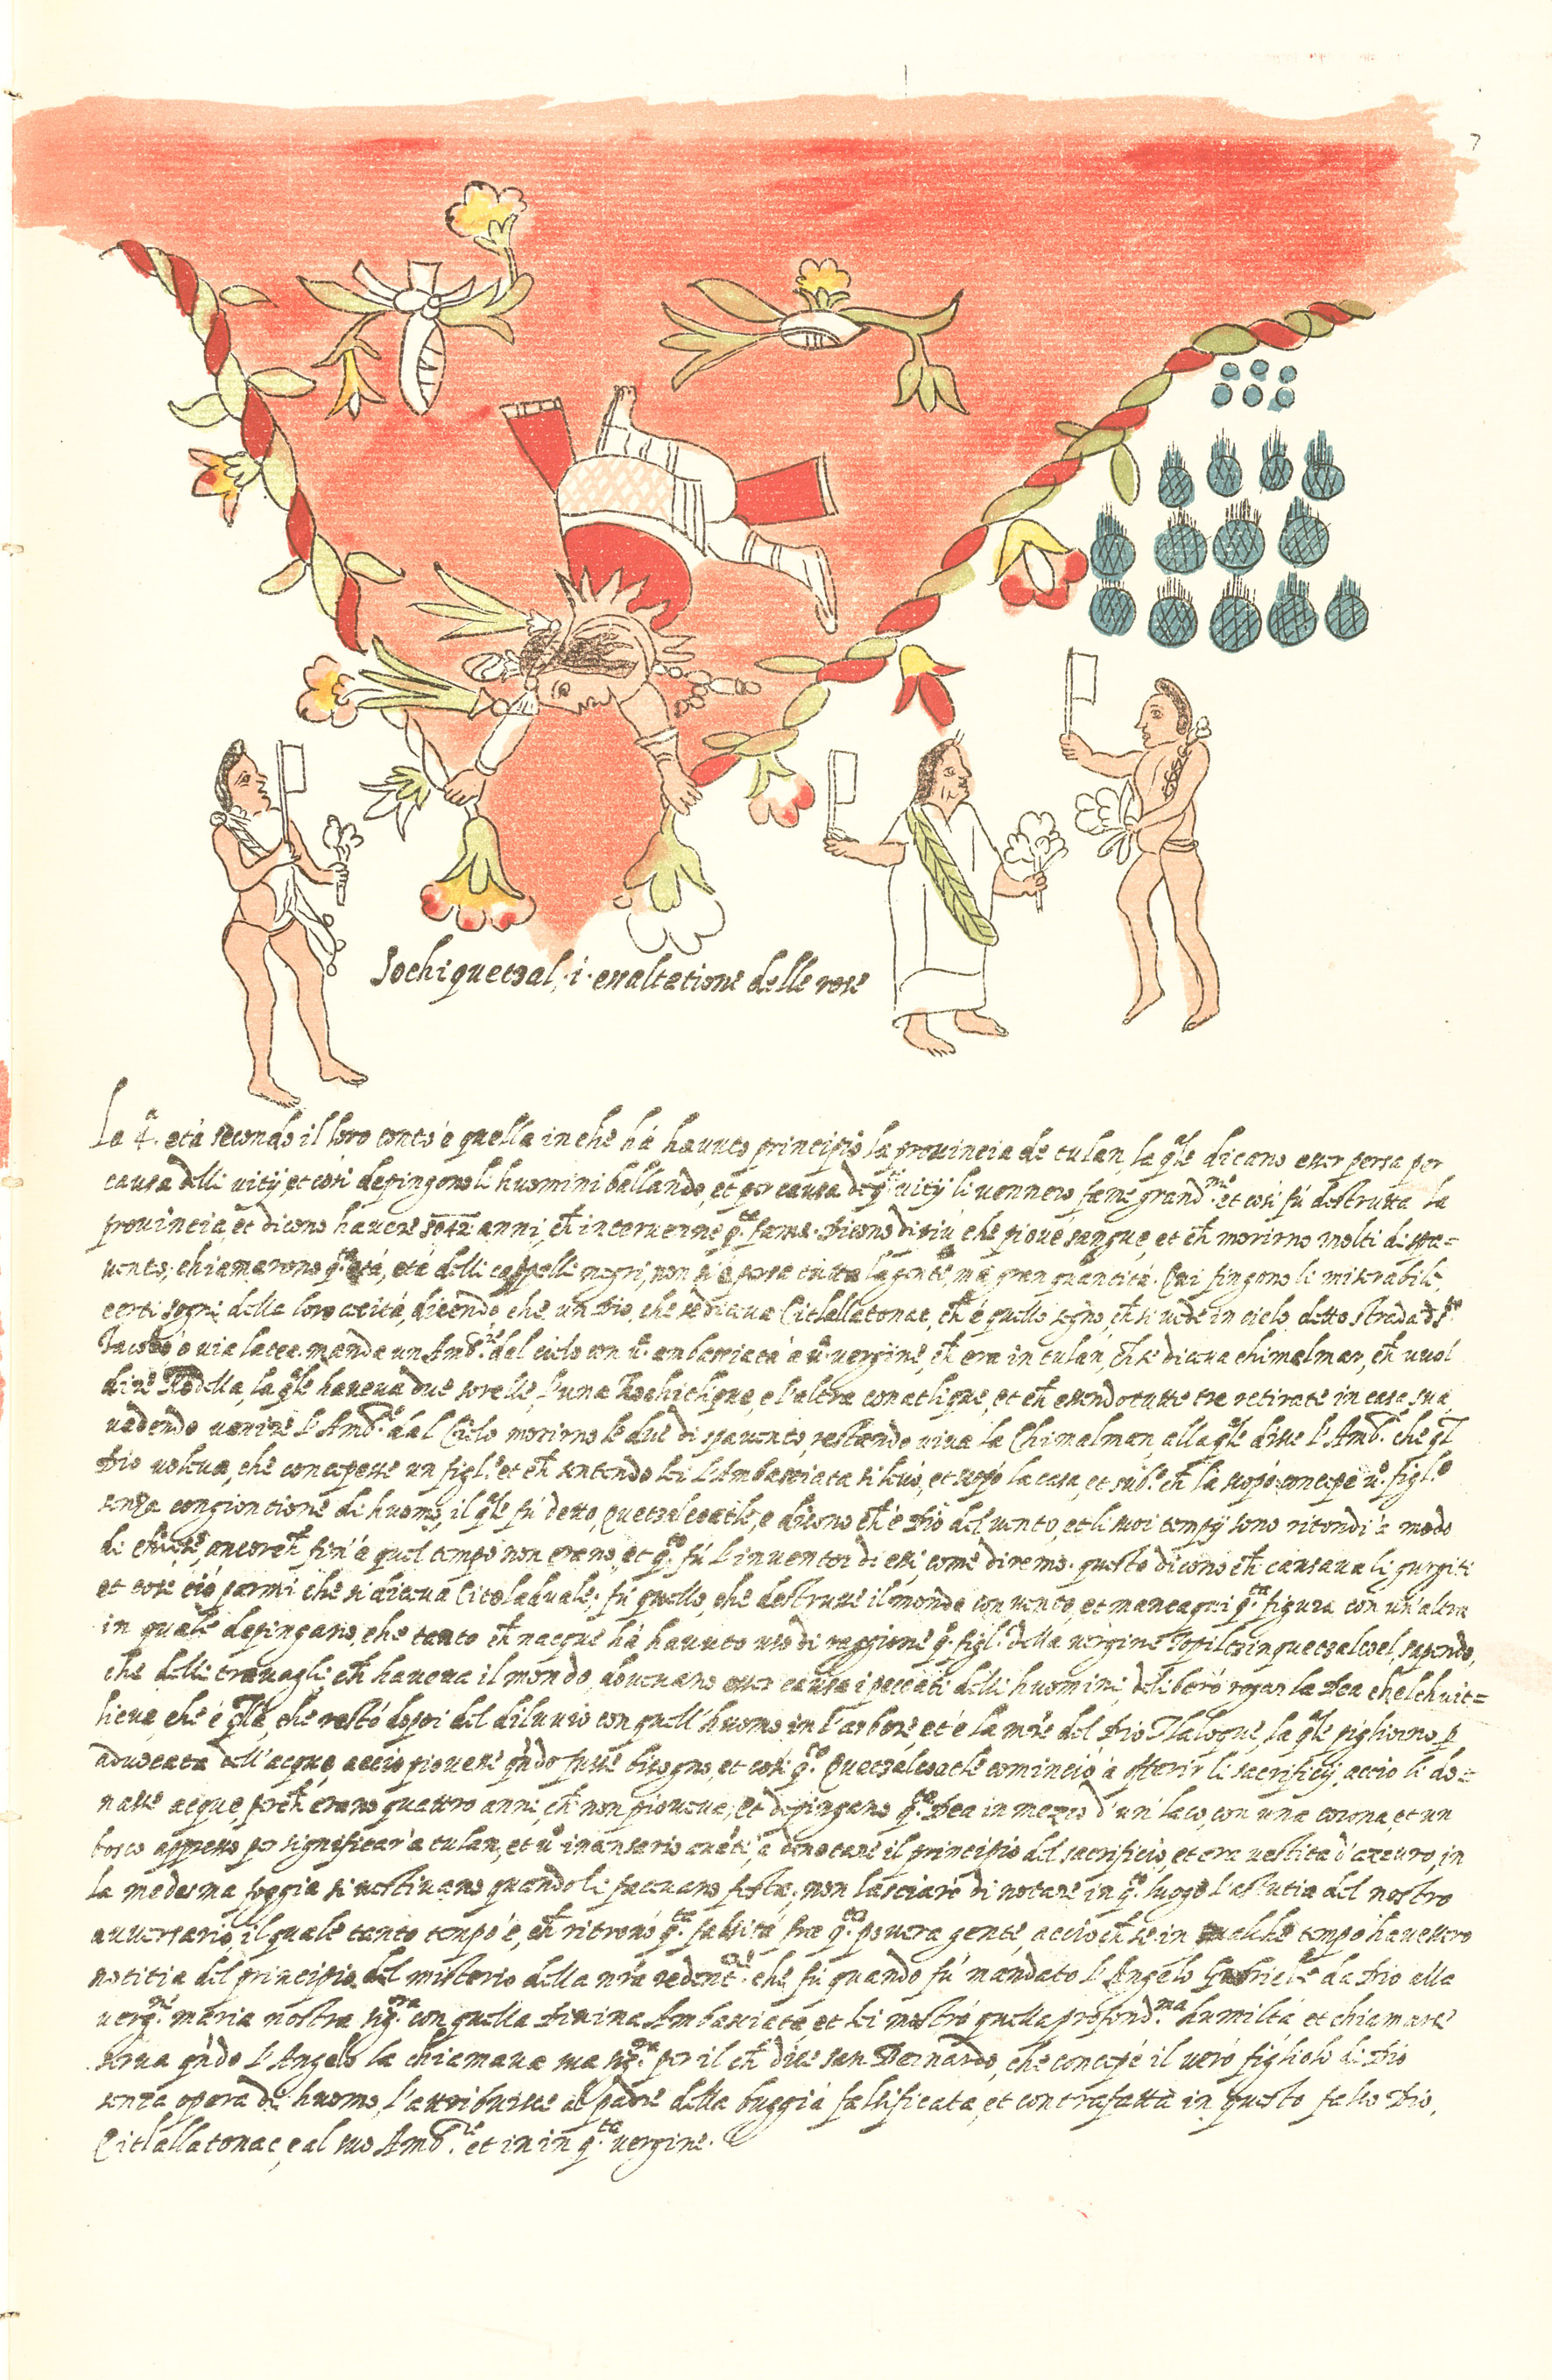 7
Sochiquetzal .i. exaltatione delle rose
La 4.ª età secondo il loro conto è quella in che há havuto principio la provincia de tulan la qˡe dicano esser persa per
causa delli vitij, et così depingono li huomini ballando, et per causa de q.ⁱ vitij li vennero fame grand.ᵐᵉ et così fú destrutta la
provincia, et dicono havere 5042 anni, ch̄ intervenne q.ᵗᵃ fame. Dicono di più che piové sangue, et ch̄ morirno molti di spa=
vento; chiamarono q.ᵗᵃ età, età delli cappelli negri, non si è persa tutta la gente, má gran quantità. Qui fingono li miserabili
certi sogni della loro cecità, dicendo, che un Dio, che se diceva Citlallatonac, ch̄ è quello segno, ch̄ si vede in cielo detto strada di S.ᵗᵒ
Jacobo, ò via lactea. manda un Amb.ʳᵉ dal cielo con uᵃ. ambasciata à uᵃ. vergine, ch̄ era in tulan, ch̄ se diceva chimalman, ch̄ vuol
dire Rodella, la qˡe haveva due sorelle, l'una Xochitlique, e l'altra conatlique, et ch̄ essendo tutte tre retirate in casa sua,
vedendo venire l'Amb.ʳᵉ dal Cielo morirno le due di spavento, restando viva la Chimalman, alla qˡe disse l'Amb.ʳᵉ che ql̄
Dio voleva, che concepesse un figl.º et ch̄ sentendo lei l'Ambasciata si levò, et scopò la casa, et sub.º ch̄ la scopò concepé uº. figl.º
senza congiontione di huomo, il qˡe fú detto, Quetzalcoatle, e dicono ch̄ è Dio del vento, et li suoi tempij sono ritondi à modo
di chiese, ancorch̄ fin' à quel tempo non erano, et q.ᵗᵒ fú l'inventor di essi, come diremo. questo dicono ch̄ causava li
et così ció parmi che si diceva Citoladuale; fú quello, che destrusse il mondo con vento, et manca qui q.ᵗᵃ figura con un'altra
in quale depingano, che tanto ch̄ nacque há havuto uso di raggione q.º figl.º della vergine Topiltzinquetzalcoel, sapendo,
che delli travagli ch̄ haveva il mondo, dovevano esser causa i peccati delli huomini, deliberó rogar la Dea chalchuit=
licue, che é qˡla, che restó dopoi del diluvio con quell'huomo in l'arbore, et é la mʳe del Dio Tlaloque, la qˡe pigliorno p
advocata dell'acque, acció piovesse qn̄do fusse bisogno, et così q.ᵗᵒ Quetzalcoatle cominció à offerir li sacrificij, acció li do=
nasse acque, perch̄ erano quattro anni, ch̄ non pioveva, et depingano q.ᵗᵃ Dea in mezzo d'un' laco, con una corona, et un
bosco appresso per significar' a tulan, et uº. inansario avāti, a denotare il principio del sacrificio, et era vestita d'azzuro, in
la medesma foggia si vestivano quando li facevano festa; non lasciaró di notare in q.º luogo l'astutia del nostro
avversario, il quale tanto tempo é, ch̄ ritrovó q.ᵗᵃ falsità fra q.ᵗᵃ povera gente, acció ch̄ se in qualche tempo havessero
notitia del principio del misterio della nʳa redent.ᵒⁿᵉ che fú quando fú mandato l'Angelo Gabriele da Dio alla
verg.ⁿᵉ maria nostra sig.ʳᵃ con quella Divina Ambasciata, et lei mostró quella profond.ᵐᵃ humiltà et chiamarse
serva qn̄do l'Angelo la chiamava sua sig.ʳᵃ per il ch̄ dice san Bernardo, che concepé il vero figliolo di Dio
senza opera di huomo, l'attribuisse al padre della buggia falsificata, et contrafatta in questo falso Dio,
Citlallatonac, e al suo Amb.ʳᵉ et in in q.ᵗᵃ vergine.